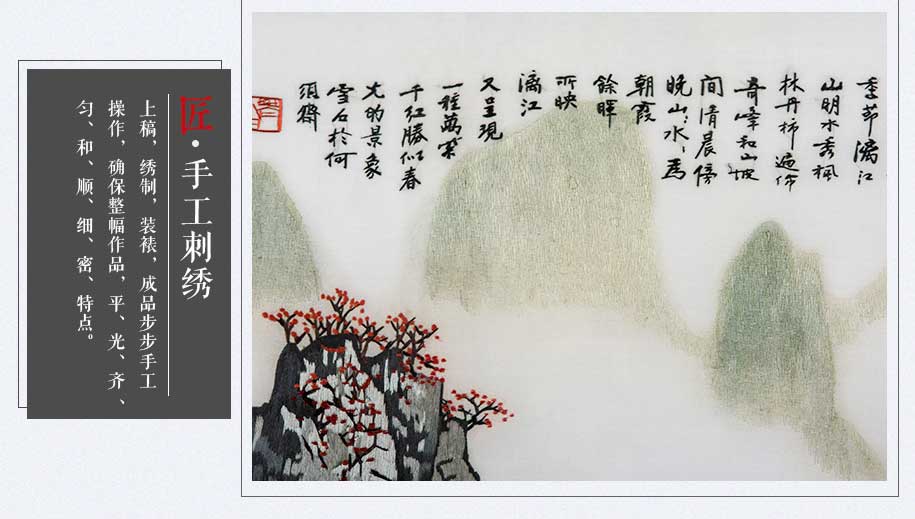 匠·手工刺绣
上稿，绣制，装裱，成品步步手工
操作，确保整幅作品，平、光、齐、
匀、和、顺、细、密、特点。
漓江
山明水秀楓
林丹柿遍佈
奇峰和山坡
間清晨傍
晚山〻水〻爲
朝霞
餘暉
所映
漓江
又呈現
一種萬紫
千紅勝似春
光的景象
雪石於何
須齋